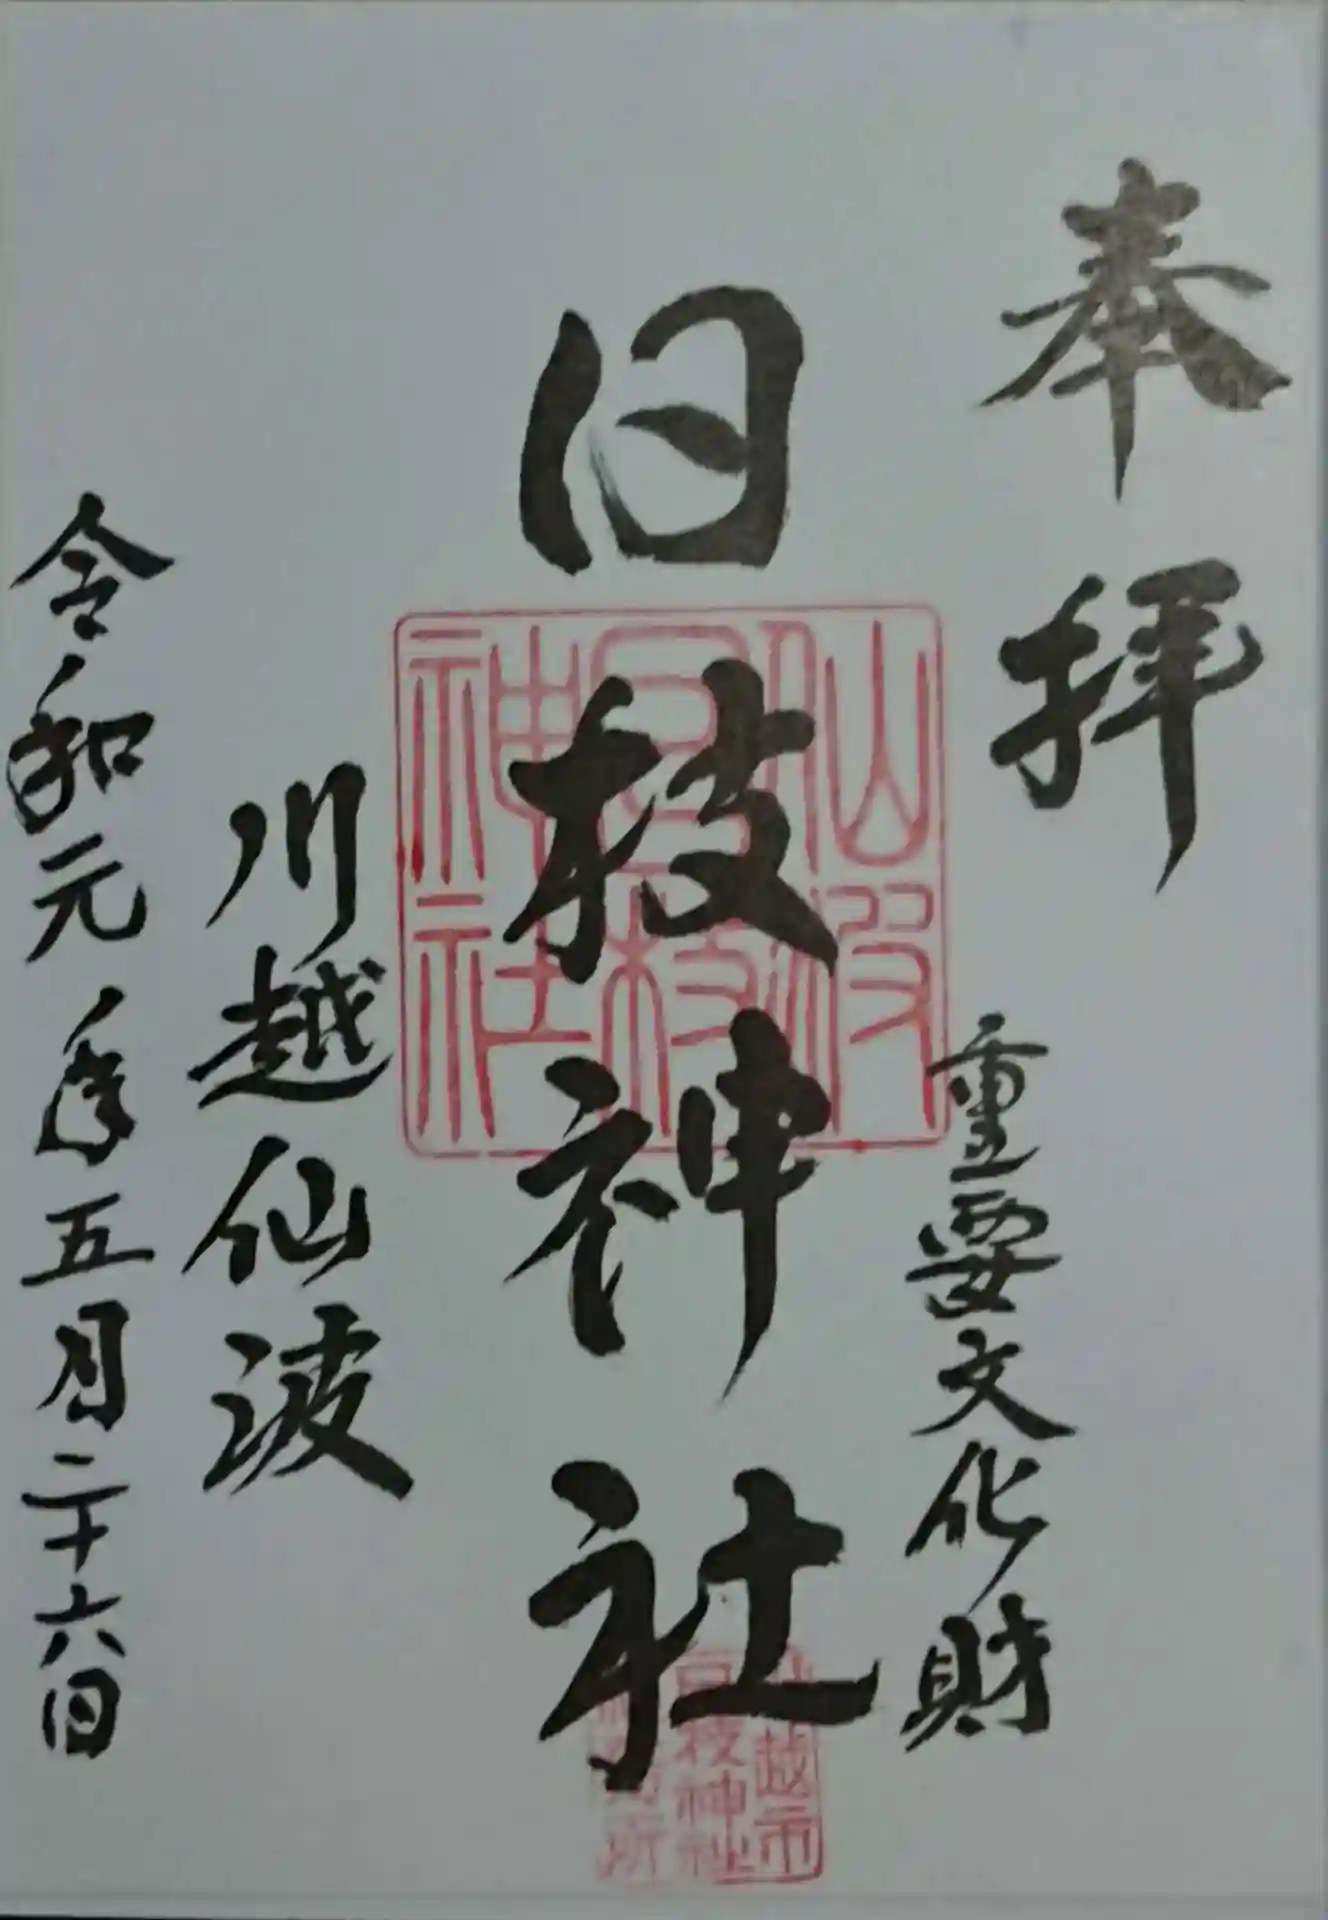 奉拝
重要文化財
日枝神社
川越仙波
令和元年五月二十六日
仙波
日枝
神社
川越市
日枝神社